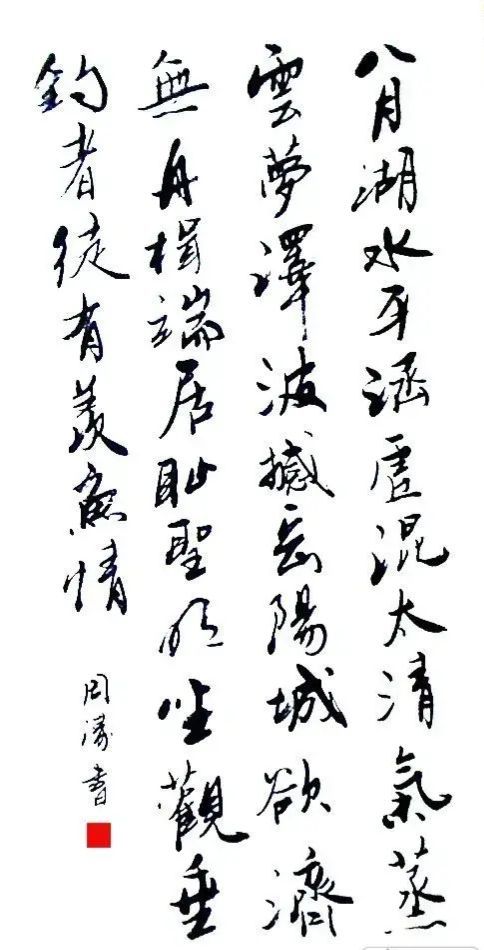 八月湖水平涵虛混太清氣蒸
雲夢澤波撼岳陽城欲濟
無舟楫端居恥聖明坐觀垂
釣者徒有羨魚情
周濤書